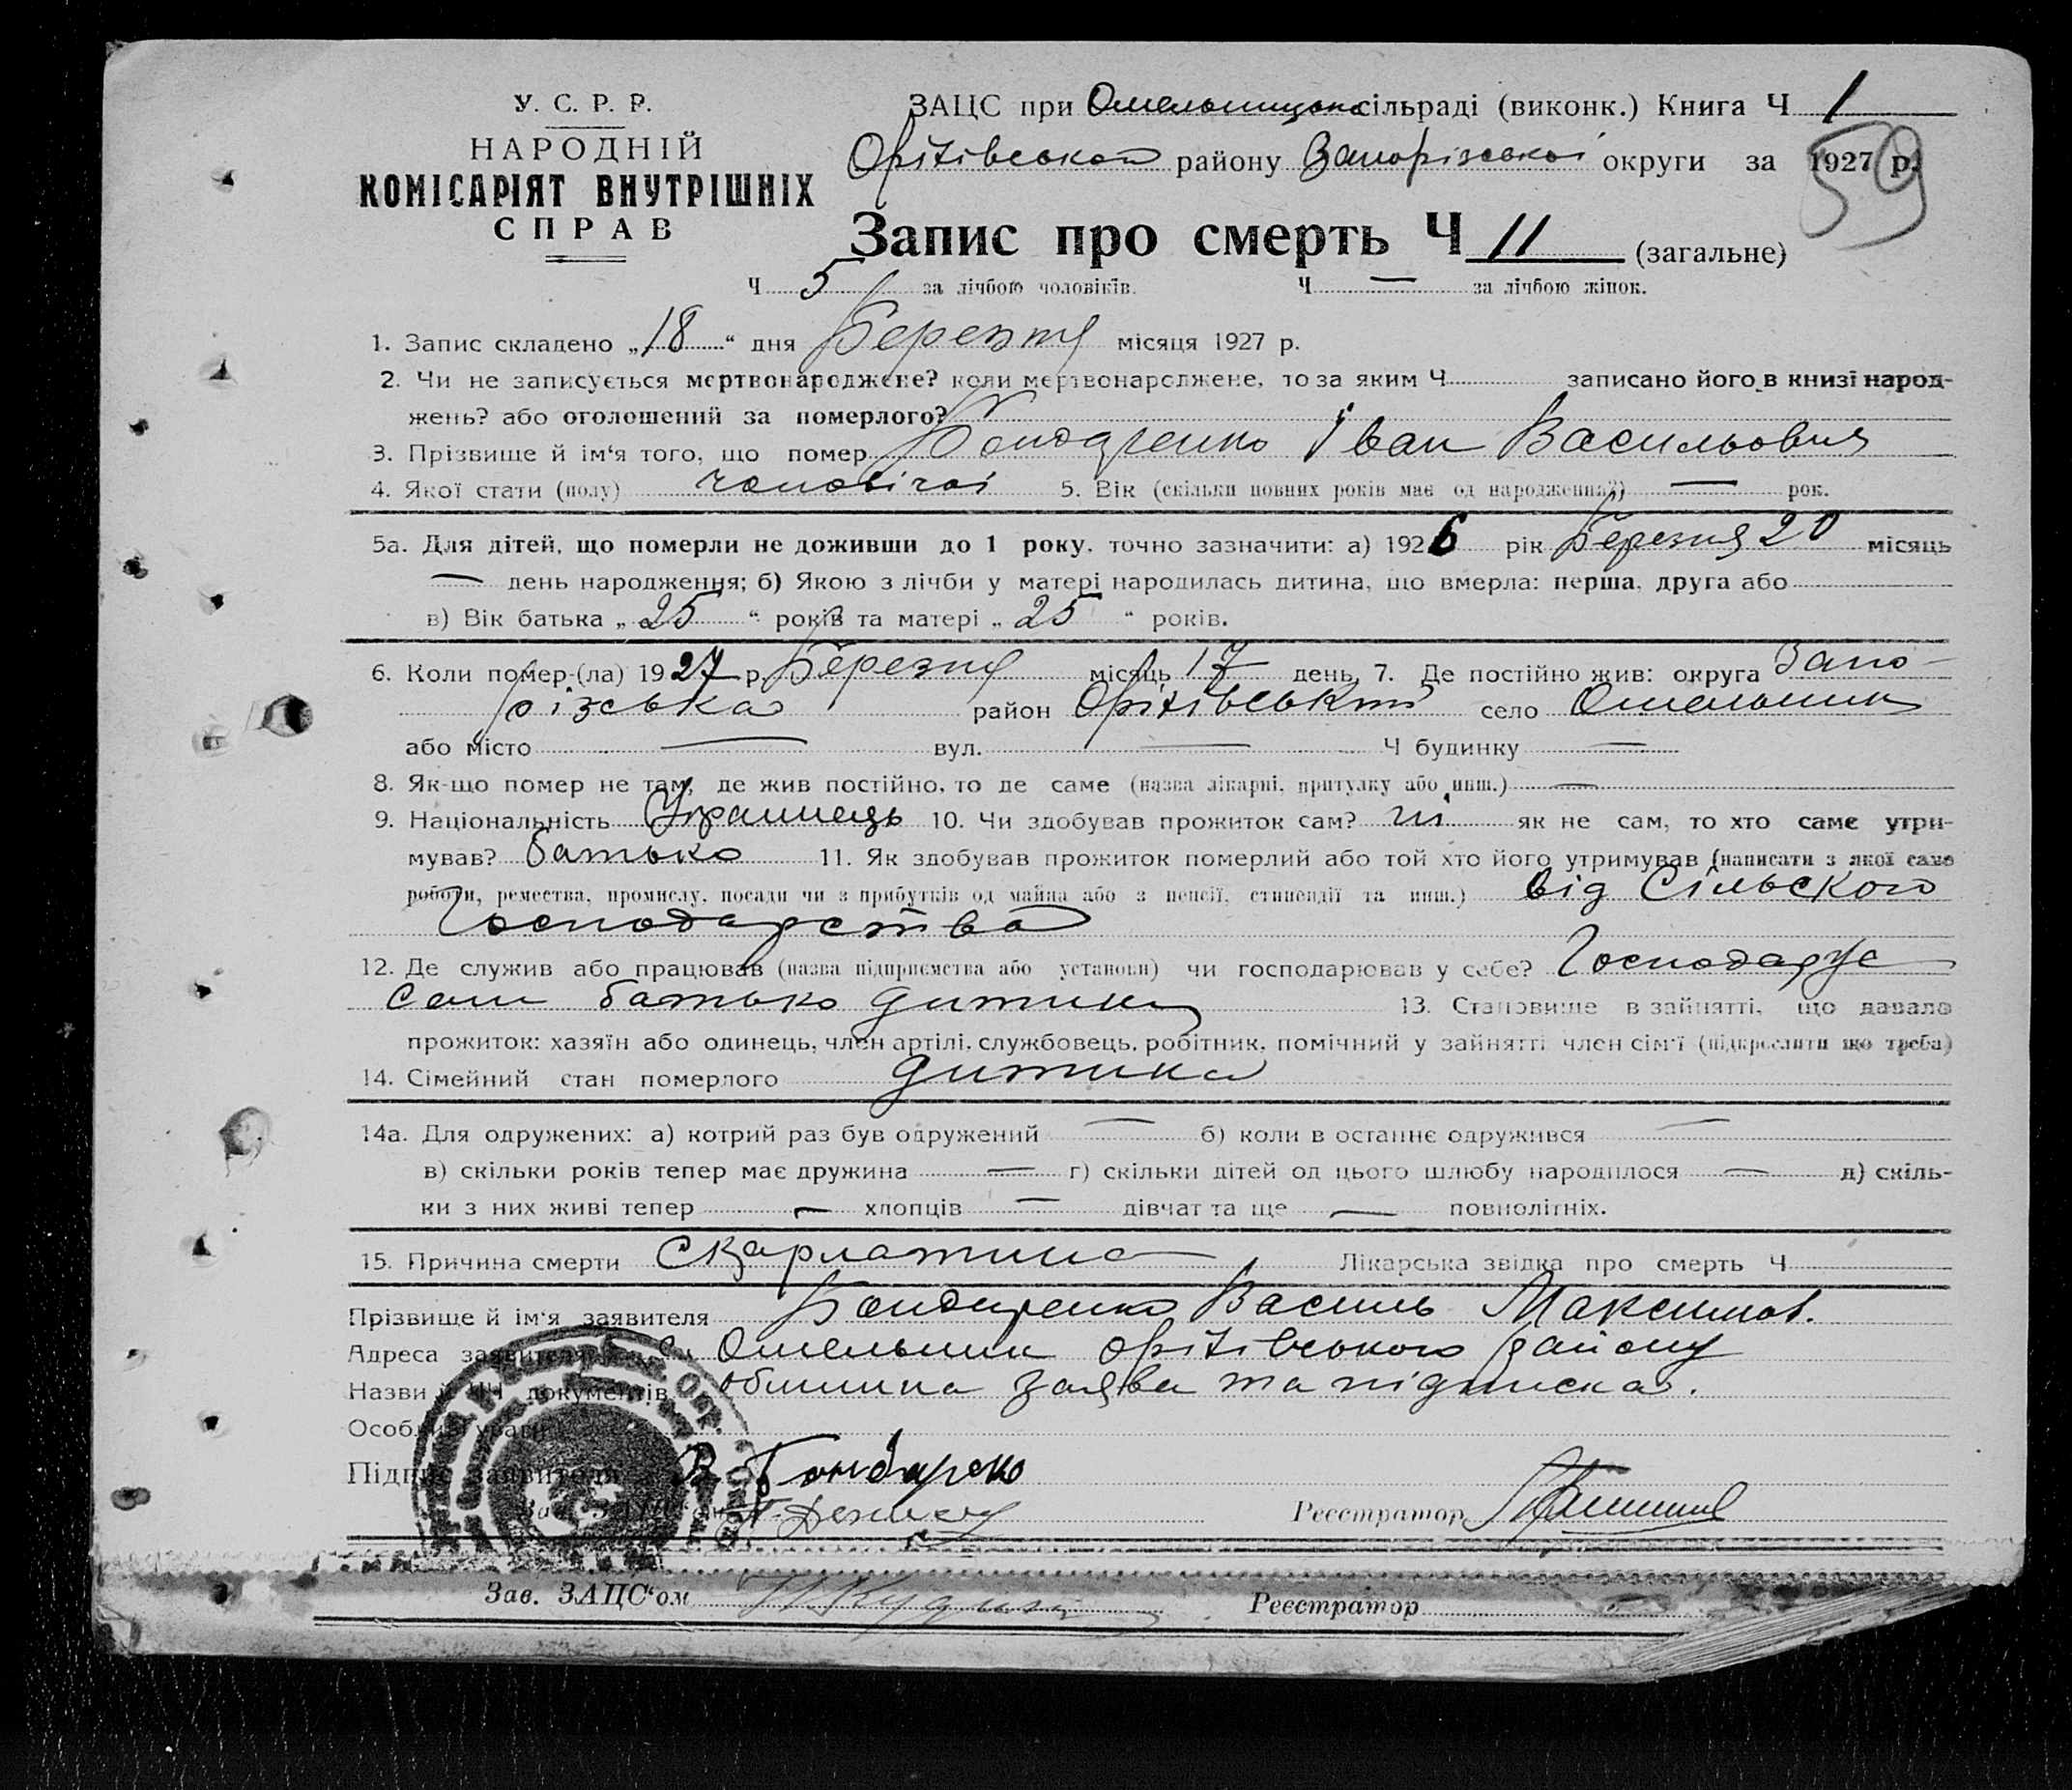 У. С. Р. Р.
НАРОДНІЙ
КОМІСАРІЯТ ВНУТРІШНІХ
СПРАВ
ЗАЦС при Омельницькій сільраді (виконк.) Книга Ч 1
Оріхівського району Запорізської округи за 1927 р.
59
Запис про смерть Ч 11 (загальне)
Ч 5 за лічбою чоловіків. Ч — за лічбою жінок.
1. Запис складено „18“ дня Березня місяця 1927 р.
2. Чи не записується мертвонароджене? коли мертвонароджене, то за яким Ч записано його в книзі народ-
жень? або оголошений за померлого?
3. Прізвище й ім‘я того, що помер Бондаренко Іван Васильович
4. Якої стати (полу) чоловічої 5. Вік (скільки повних років має од народження?) — рок.
5а. Для дітей, що померли не доживши до 1 року, точно зазначити: а) 1926 рік Березня 20 місяць
— день народження; б) Якою з лічби у матері народилась дитина, що вмерла: перша, друга або
в) Вік батька „25“ років та матері „25“ років.
6. Коли помер-(ла) 1927 р. Березня місяць 17 день, 7. Де постійно жив: округа Запо-
різська район Оріхівський село Омельник
або місто — вул. — Ч будинку —
8. Як-що помер не там, де жив постійно, то де саме (назва лікарні, притулку або инш.) —
9. Національність Українець 10. Чи здобував прожиток сам? ні як не сам, то хто саме утри-
мував? батько 11. Як здобував прожиток померлий або той хто його утримував (написати з якої саме
роботи, ремества, промислу, посади чи з прибутків од майна або з пенсії, стипендії та инш.) від Сільского
Господарства
12. Де служив або працював (назва підприємства або установи) чи господарював у себе? Господарує
сам батько дитини 13. Становище в зайнятті, що давало
прожиток: хазяїн або одинець, член артілі, службовець, робітник, помічний у зайнятті член сім‘ї (підкреслити що треба)
14. Сімейний стан померлого дитина
14а. Для одружених: а) котрий раз був одружений — б) коли в останнє одружився —
в) скільки років тепер має дружина — г) скільки дітей од цього шлюбу народилося — д) скіль-
ки з них живі тепер — хлопців — дівчат та ще — повнолітніх.
15. Причина смерти Скарлатина Лікарська звідка про смерть Ч
Прізвище й ім‘я заявителя Бондаренко Василь Максимов.
Адреса заявителя с. Омельник Оріхівського району
Назви й ЧЧ документів обшина заява та підписка.
Особливі уваги
Підпис заявителя В. Бондаренко
Зав. ЗАЦС‘ом Реєстратор
Зав. ЗАЦС‘ом Реєстратор